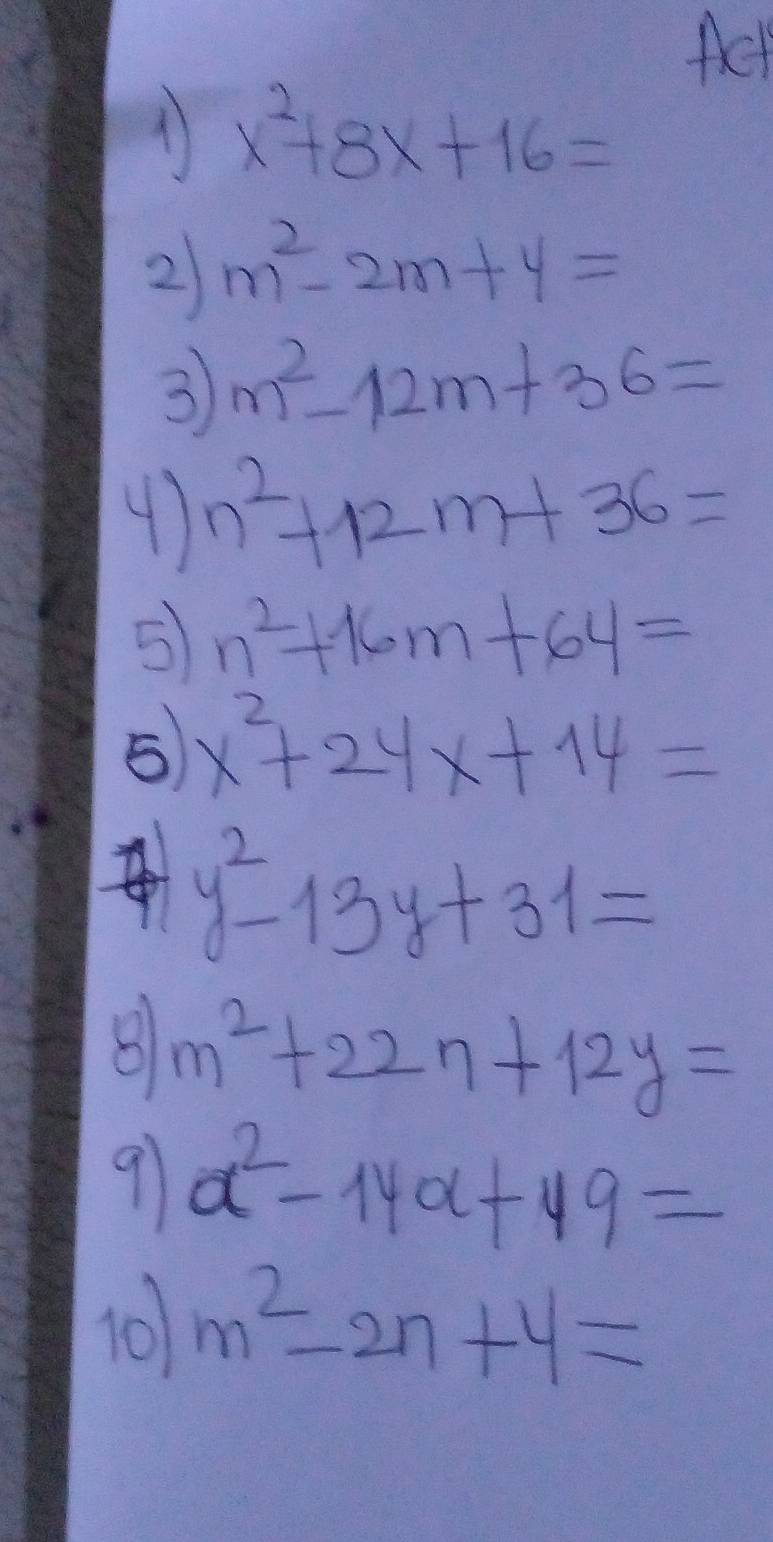 Act
1) x²+8x+16=
2) m²-2m+4=
3) m²-12m+36=
4) n²+12m+36=
5) n²+16m+64=
6) x²+24x+14=
7) y²-13y+31=
8) m²+22n+12y=
9) a²-14a+49=
10) m²-2n+4=